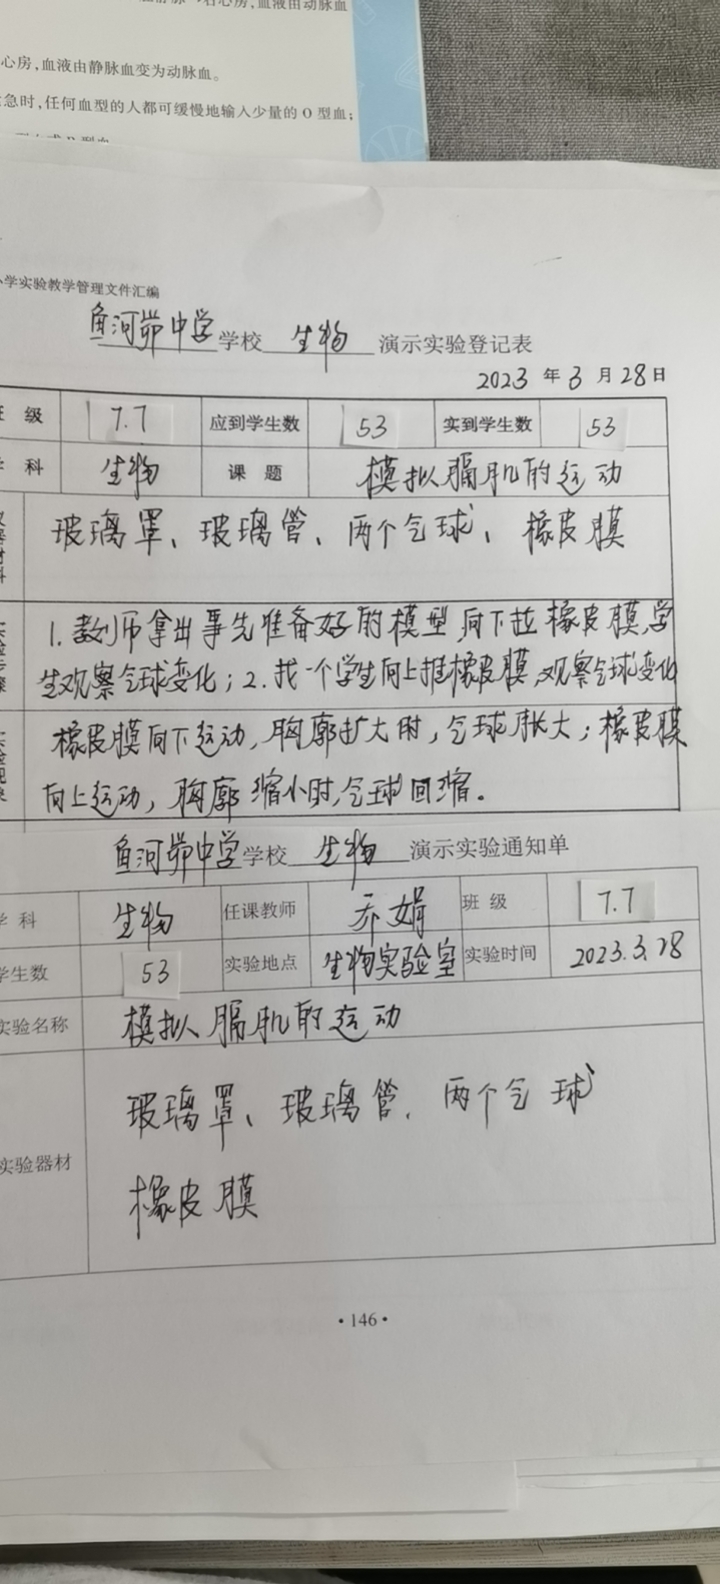 右心房,血液由动脉血
心房,血液由静脉血变为动脉血。
急时,任何血型的人都可缓慢地输入少量的 O 型血;
小学实验教学管理文件汇编
鱼河峁中学学校 生物 演示实验登记表
2023 年 3 月 28 日
班 级 7.7 应到学生数 53 实到学生数 53
学 科 生物 课 题 模拟膈肌的运动
仪器材料 玻璃罩、玻璃管、两个气球、橡皮膜
实验步骤 1.教师拿出事先准备好的模型,向下拉橡皮膜,学
生观察气球变化;2.找一个学生向上推橡皮膜,观察气球变化
实验现象 橡皮膜向下运动,胸廓扩大时,气球胀大;橡皮膜
向上运动,胸廓缩小时,气球回缩。
鱼河峁中学学校 生物 演示实验通知单
学 科 生物 任课教师 乔娟 班 级 7.7
学生数 53 实验地点 生物实验室 实验时间 2023.3.28
实验名称 模拟膈肌的运动
玻璃罩、玻璃管、两个气球
实验器材
橡皮膜
·146·